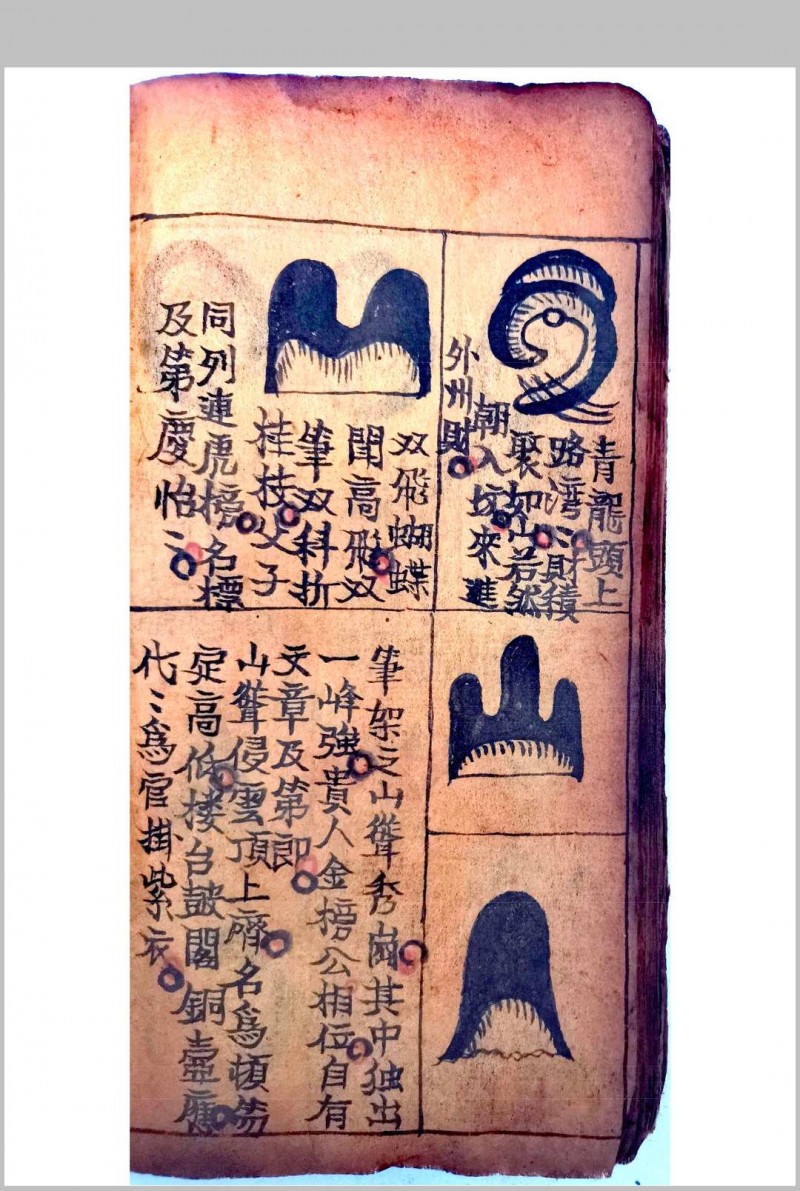 青龍頭上
路湾〻財積
聚如山若然
朝入坟來進
外州財
双飛蝴蝶
高飛双
筆双科折
桂枝父子
同列連虎榜名標
及第慶怡〻
筆架之山聳秀崗其中独出
一峰強貴人金榜公相位自有
文章及第郎
山聳侵雲頂上齊名為頓笏
定高低楼台鼓閣銅壷應
代〻為官掛紫衣